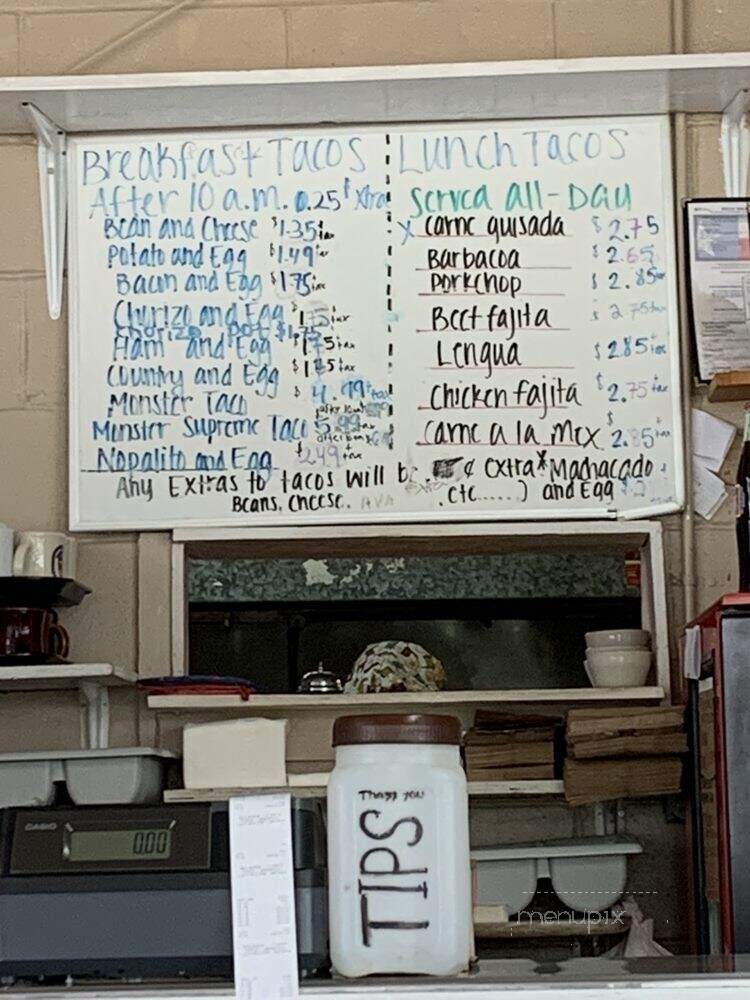 Breakfast Tacos
After 10 a.m. 0.25¢ Xtra
Bean and Cheese $1.35 tax
Potato and Egg $1.49 tax
Bacun and Egg $1.75 tax
Churizo and Egg $1.75 tax
Chorizo Pot $1.75
Ham and Egg $1.75 tax
Country and Egg $ tax
Monster Taco $4.99 tax
Munster Supreme Taco 5.99 tax
Nopalito and Egg $2.49 tax
Lunch Tacos
Served all-Day
X carne guisada $2.75
Barbacoa $2.65
Porkchop $2.85
Beef fajita $2.75 tax
Lengua $2.85 tax
Chicken fajita $2.75 tax
Carne a la Mex $2.85 tax
Any Extras to tacos will be ¢ extra * Machacado
Beans, cheese. etc......) and Egg
CASIO
0.00
Thank you
TIPS
menupix